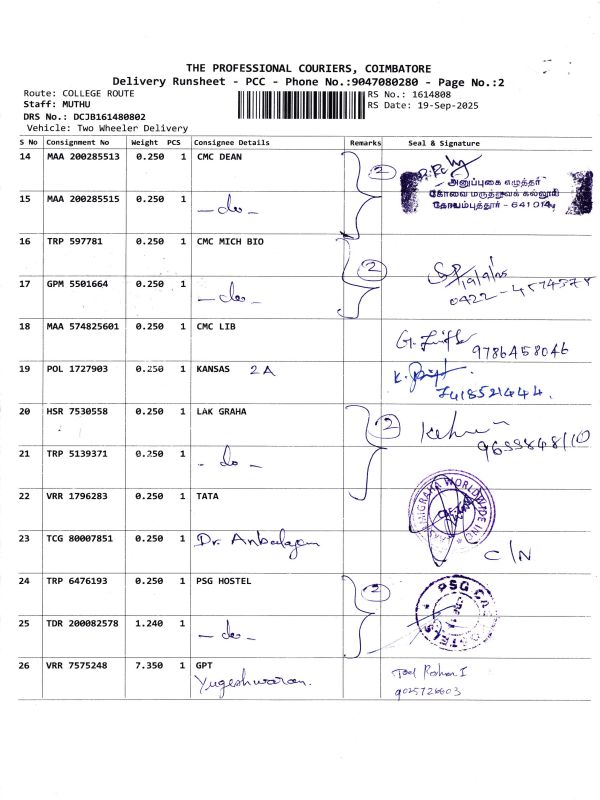 THE PROFESSIONAL COURIERS, COIMBATORE
Delivery Runsheet - PCC - Phone No.:9047080280 - Page No.:2
Route: COLLEGE ROUTE
RS No.: 1614808
Staff: MUTHU
RS Date: 19-Sep-2025
DRS No.: DCJB161480802
Vehicle: Two Wheeler Delivery
S No Consignment No Weight PCS Consignee Details Remarks Seal & Signature
14 MAA 200285513 0.250 1 CMC DEAN 2
அனுப்புகை எழுத்தர்
கோவை மருத்துவக் கல்லூரி
கோயம்புத்தூர் - 641014
15 MAA 200285515 0.250 1 - do -
16 TRP 597781 0.250 1 CMC MICH BIO 2
17 GPM 5501664 0.250 1 - do -
0422 - 4574574
18 MAA 574825601 0.250 1 CMC LIB
9786458046
19 POL 1727903 0.250 1 KANSAS 2A
7418521444.
20 HSR 7530558 0.250 1 LAK GRAHA 2
21 TRP 5139371 0.250 1 - do -
22 VRR 1796283 0.250 1 TATA
23 TCG 80007851 0.250 1 Dr. Anbalagan
C/N
24 TRP 6476193 0.250 1 PSG HOSTEL 2
PSG
25 TDR 200082578 1.240 1 - do -
26 VRR 7575248 7.350 1 GPT
Yugeshwaran.
9025726603